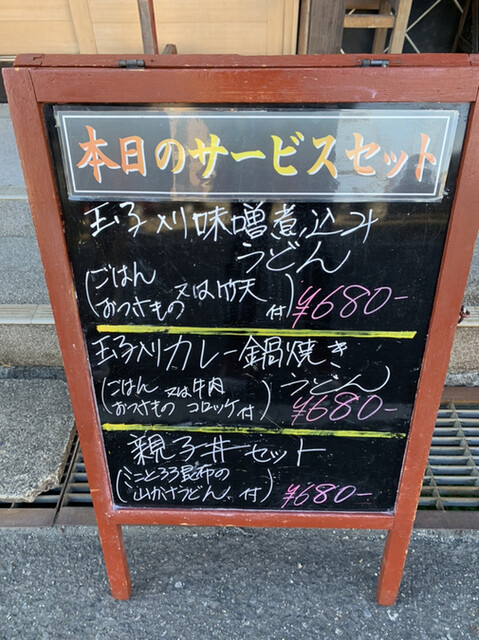 本日のサービスセット
玉子入り味噌煮込み
うどん
(ごはん
おつさもの 又は竹天 付) ¥680-
玉子入りカレー鍋焼き
うどん
(ごはん 又は牛肉
おつさもの コロッケ付) ¥680-
親子丼セット
(ミニとろろ昆布の
山かけうどん 付) ¥680-